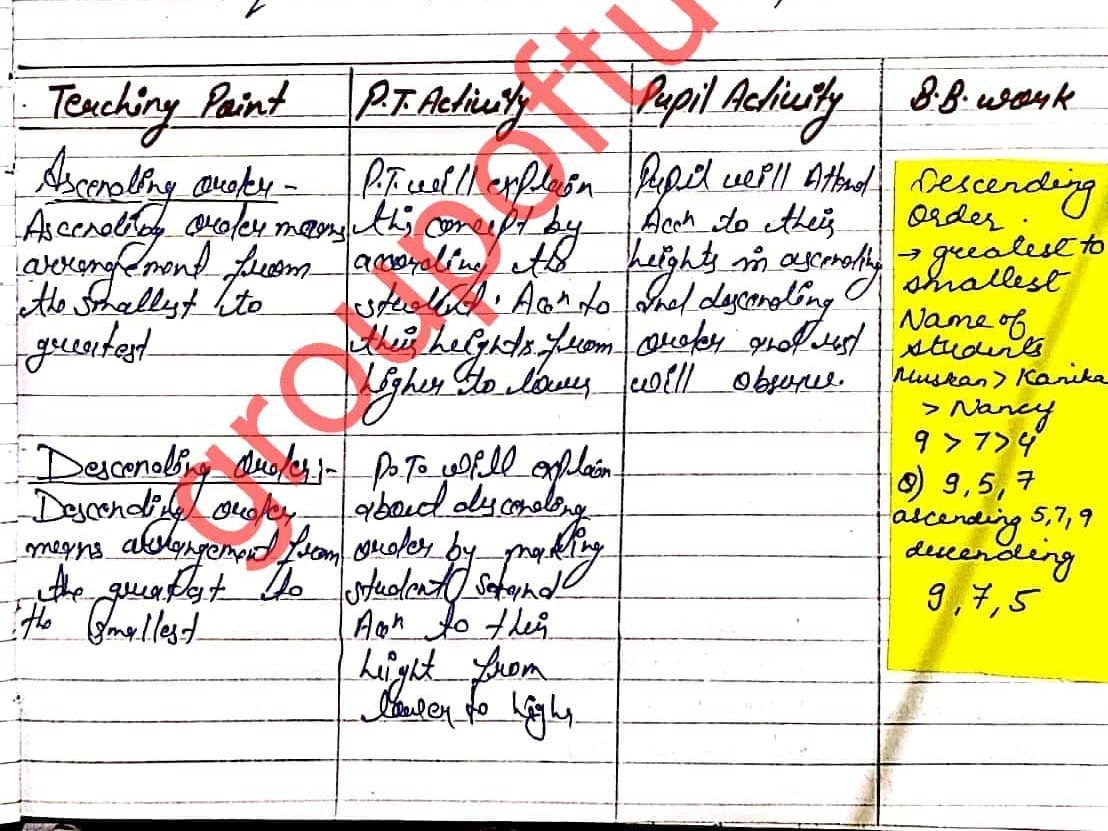 Teaching Point
Ascending order -
Ascending order means
arrangement from
the smallest to
greatest
Descending order :-
Descending order
means arrangement from
the greatest to
the smallest
P.T. Activity
P.T. will explain
this concept by
according the
student. Accⁿ to
their heights from
higher to lower
P.T. will explain
about descending
order by making
student stand
Accⁿ to their
height from
lower to high
Pupil Activity
Pupil will Attend
Accⁿ to their
heights in ascending
and descending
order and rest
will observe.
B.B. work
Descending
order.
→ greatest to
smallest
Name of
students
Muskan > Kanika
> Nancy
9 > 7 > 4
Q) 9, 5, 7
ascending 5, 7, 9
descending
9, 7, 5
groupoftu